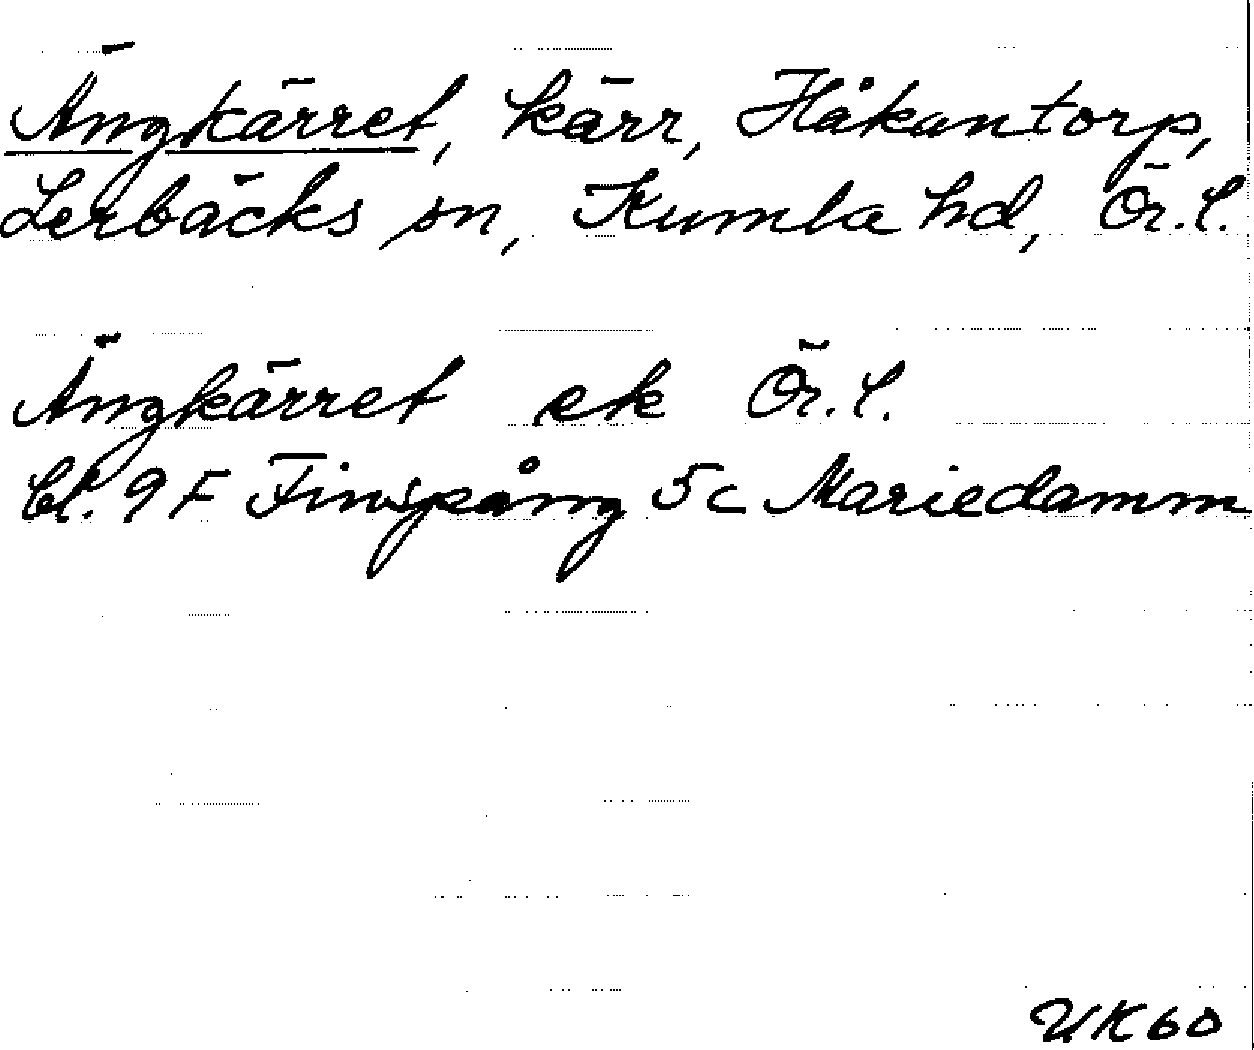 Ängkärret, kärr, Håkantorp,
Lerbäcks sn, Kumla hd, Ör.l.
Ängkärret ek Ör.l.
bl. 9F Finspång 5c Mariedamm
UK60